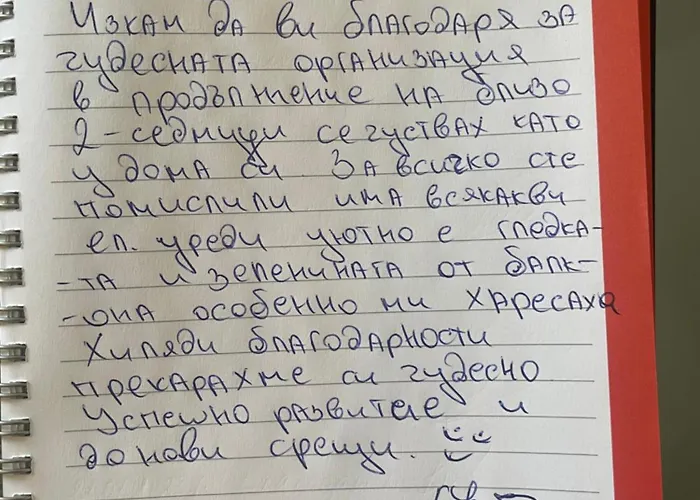 Искам да ви благодаря за
чудесната организация
в продължение на близо
2-седмици се чуствах като
у дома си. За всичко сте
помислили има всякакви
ел. уреди уютно е гледка-
-та и зеленината от балк-
-она особенно ми харесаха
Хиляди благодарности
прекарахме си чудесно
Успешно развитие и
до нови срещи.